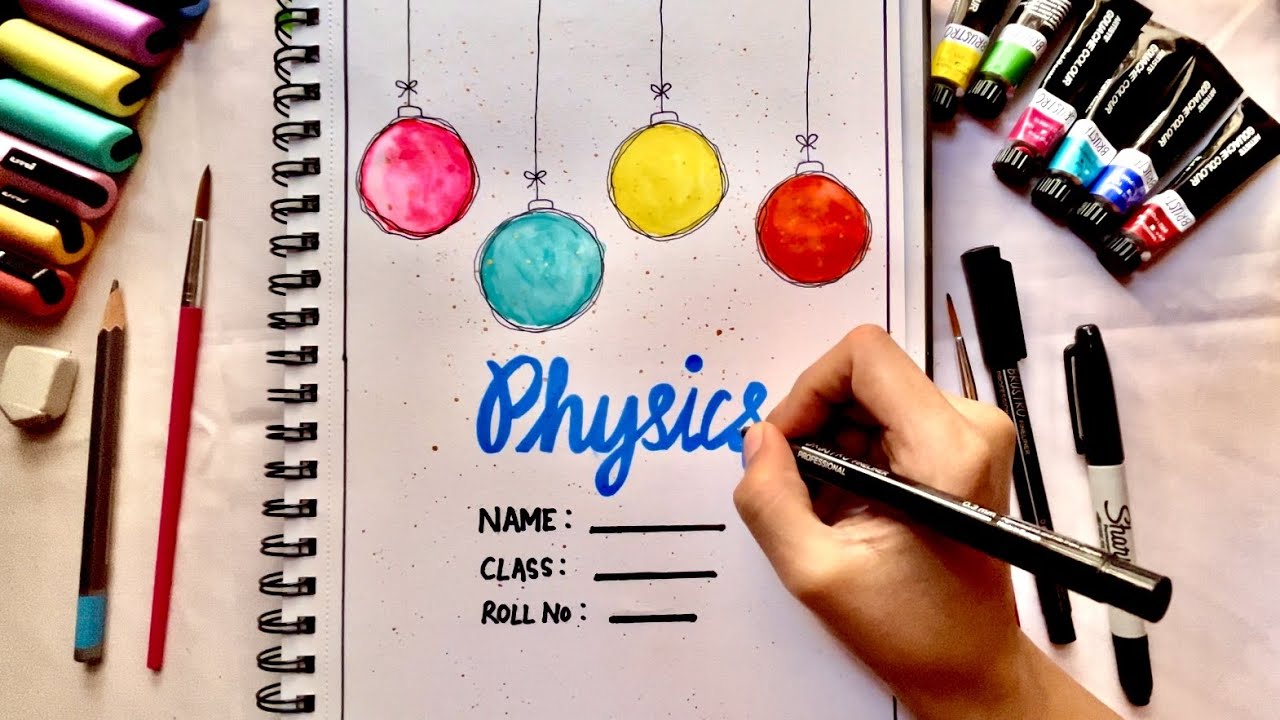 Physics
NAME:
CLASS:
ROLL NO:
BRUSTRO
BRUSTRO
ARTISTS'
GOUACHE COLOUR
BRUSTRO
GOUACHE COLOUR
GOUACHE COLOUR
BRUSTRO FINELINER
PROFESSIONAL
BRUSTRO
uni